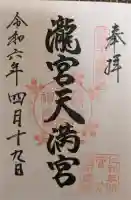 奉拝
瀧宮天満宮
令和六年四月十九日